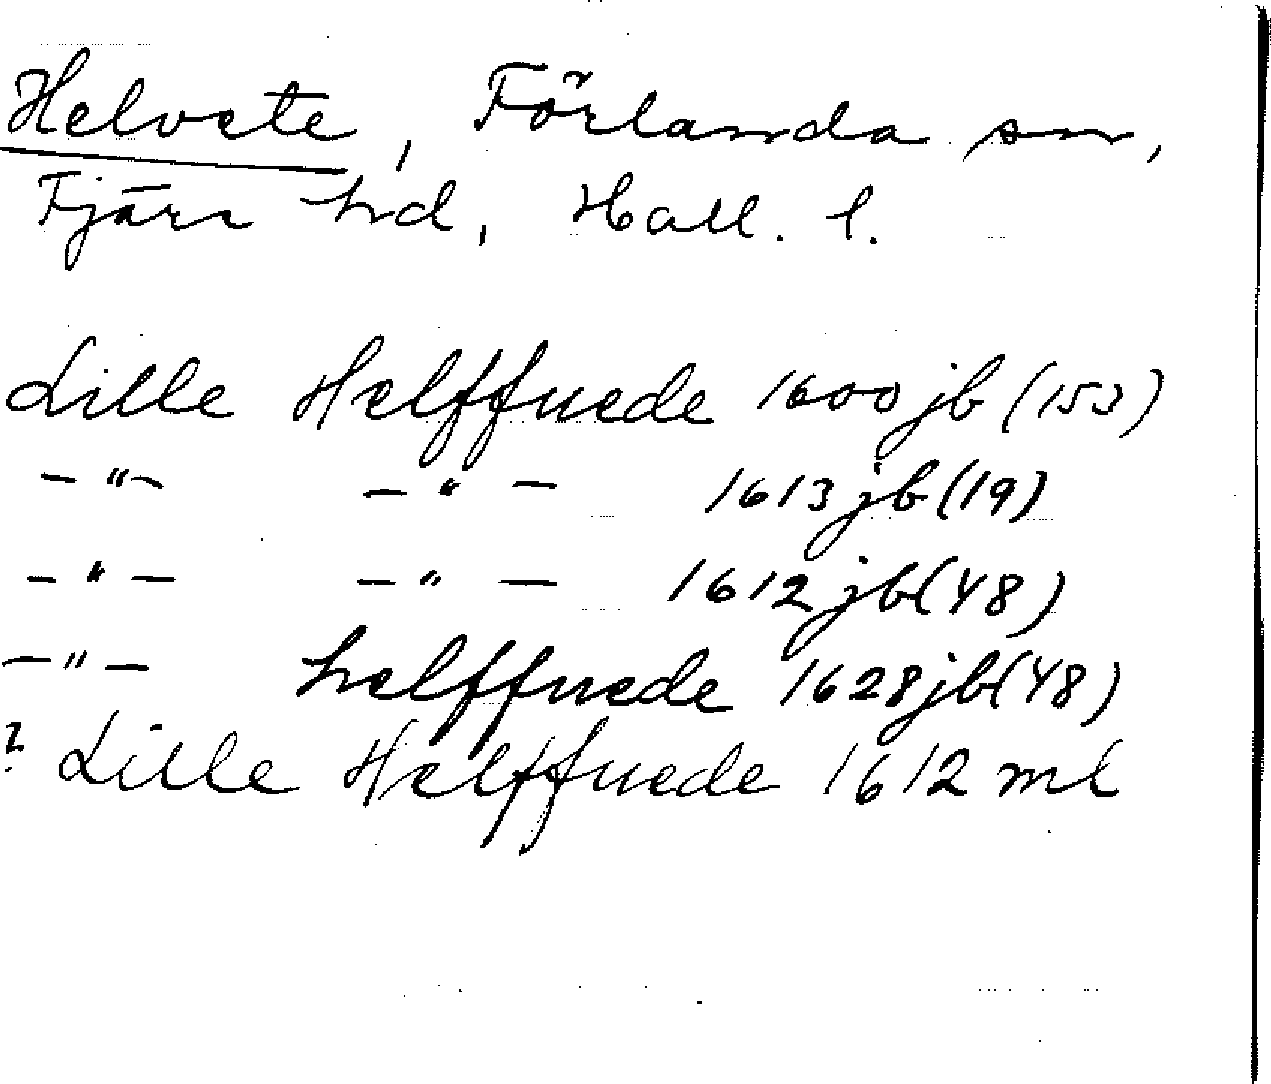 Helvete, Förlanda sn,
Fjäre hd, Hall. l.
Lille Helffuede 1600 jb (153)
-"- -"- 1613 jb (19)
-"- -"- 1612 jb (48)
-"- helffuede 1628 jb (48)
? Lille Helffuede 1612 ml